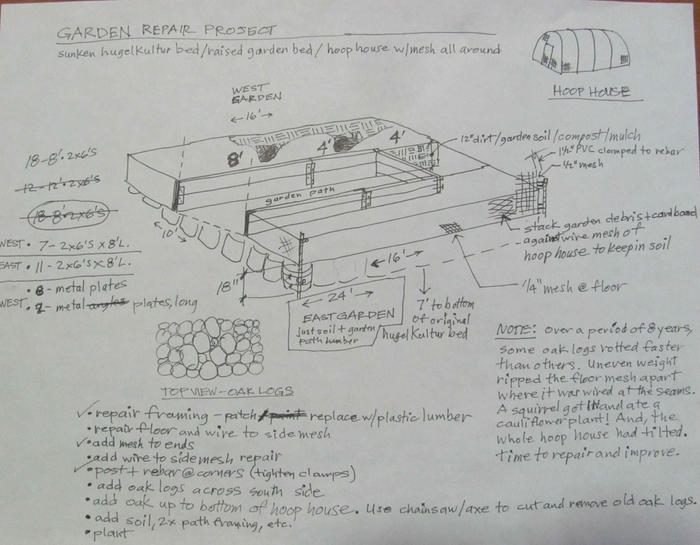 GARDEN REPAIR PROJECT
sunken hugelkultur bed/raised garden bed/hoop house w/mesh all around
HOOP HOUSE
WEST
GARDEN
16'
8'
4'
4'
12" dirt/garden soil/compost/mulch
1¼" PVC clamped to rebar
½" mesh
18-8'·2x6'S
12-12'·2x6'S
18-8'·2x6'S
garden path
10'
WEST · 7-2x6'S x 8'L.
EAST · 11-2x6'S x 8'L.
· 8- metal plates
WEST · 2- metal angles plates, long
18"
24'
16'
stack garden debris + cardboard
against wire mesh of
hoop house to keep in soil
¼" mesh @ floor
EAST GARDEN
just soil + garden
path lumber
7' to bottom
of original
hugelkultur bed
TOP VIEW-OAK LOGS
NOTE: over a period of 8 years,
some oak logs rotted faster
than others. Uneven weight
ripped the floor mesh apart
where it was wired at the seams.
A squirrel got in and ate a
cauliflower plant! And, the
whole hoop house had tilted.
Time to repair and improve.
✓· repair framing - patch/paint replace w/plastic lumber
· repair floor and wire to side mesh
✓· add mesh to ends
· add wire to side mesh repair
✓· post + rebar @ corners (tighten clamps)
· add oak logs across south side
· add oak up to bottom of hoop house. Use chainsaw/axe to cut and remove old oak logs.
· add soil, 2x path framing, etc.
· plant